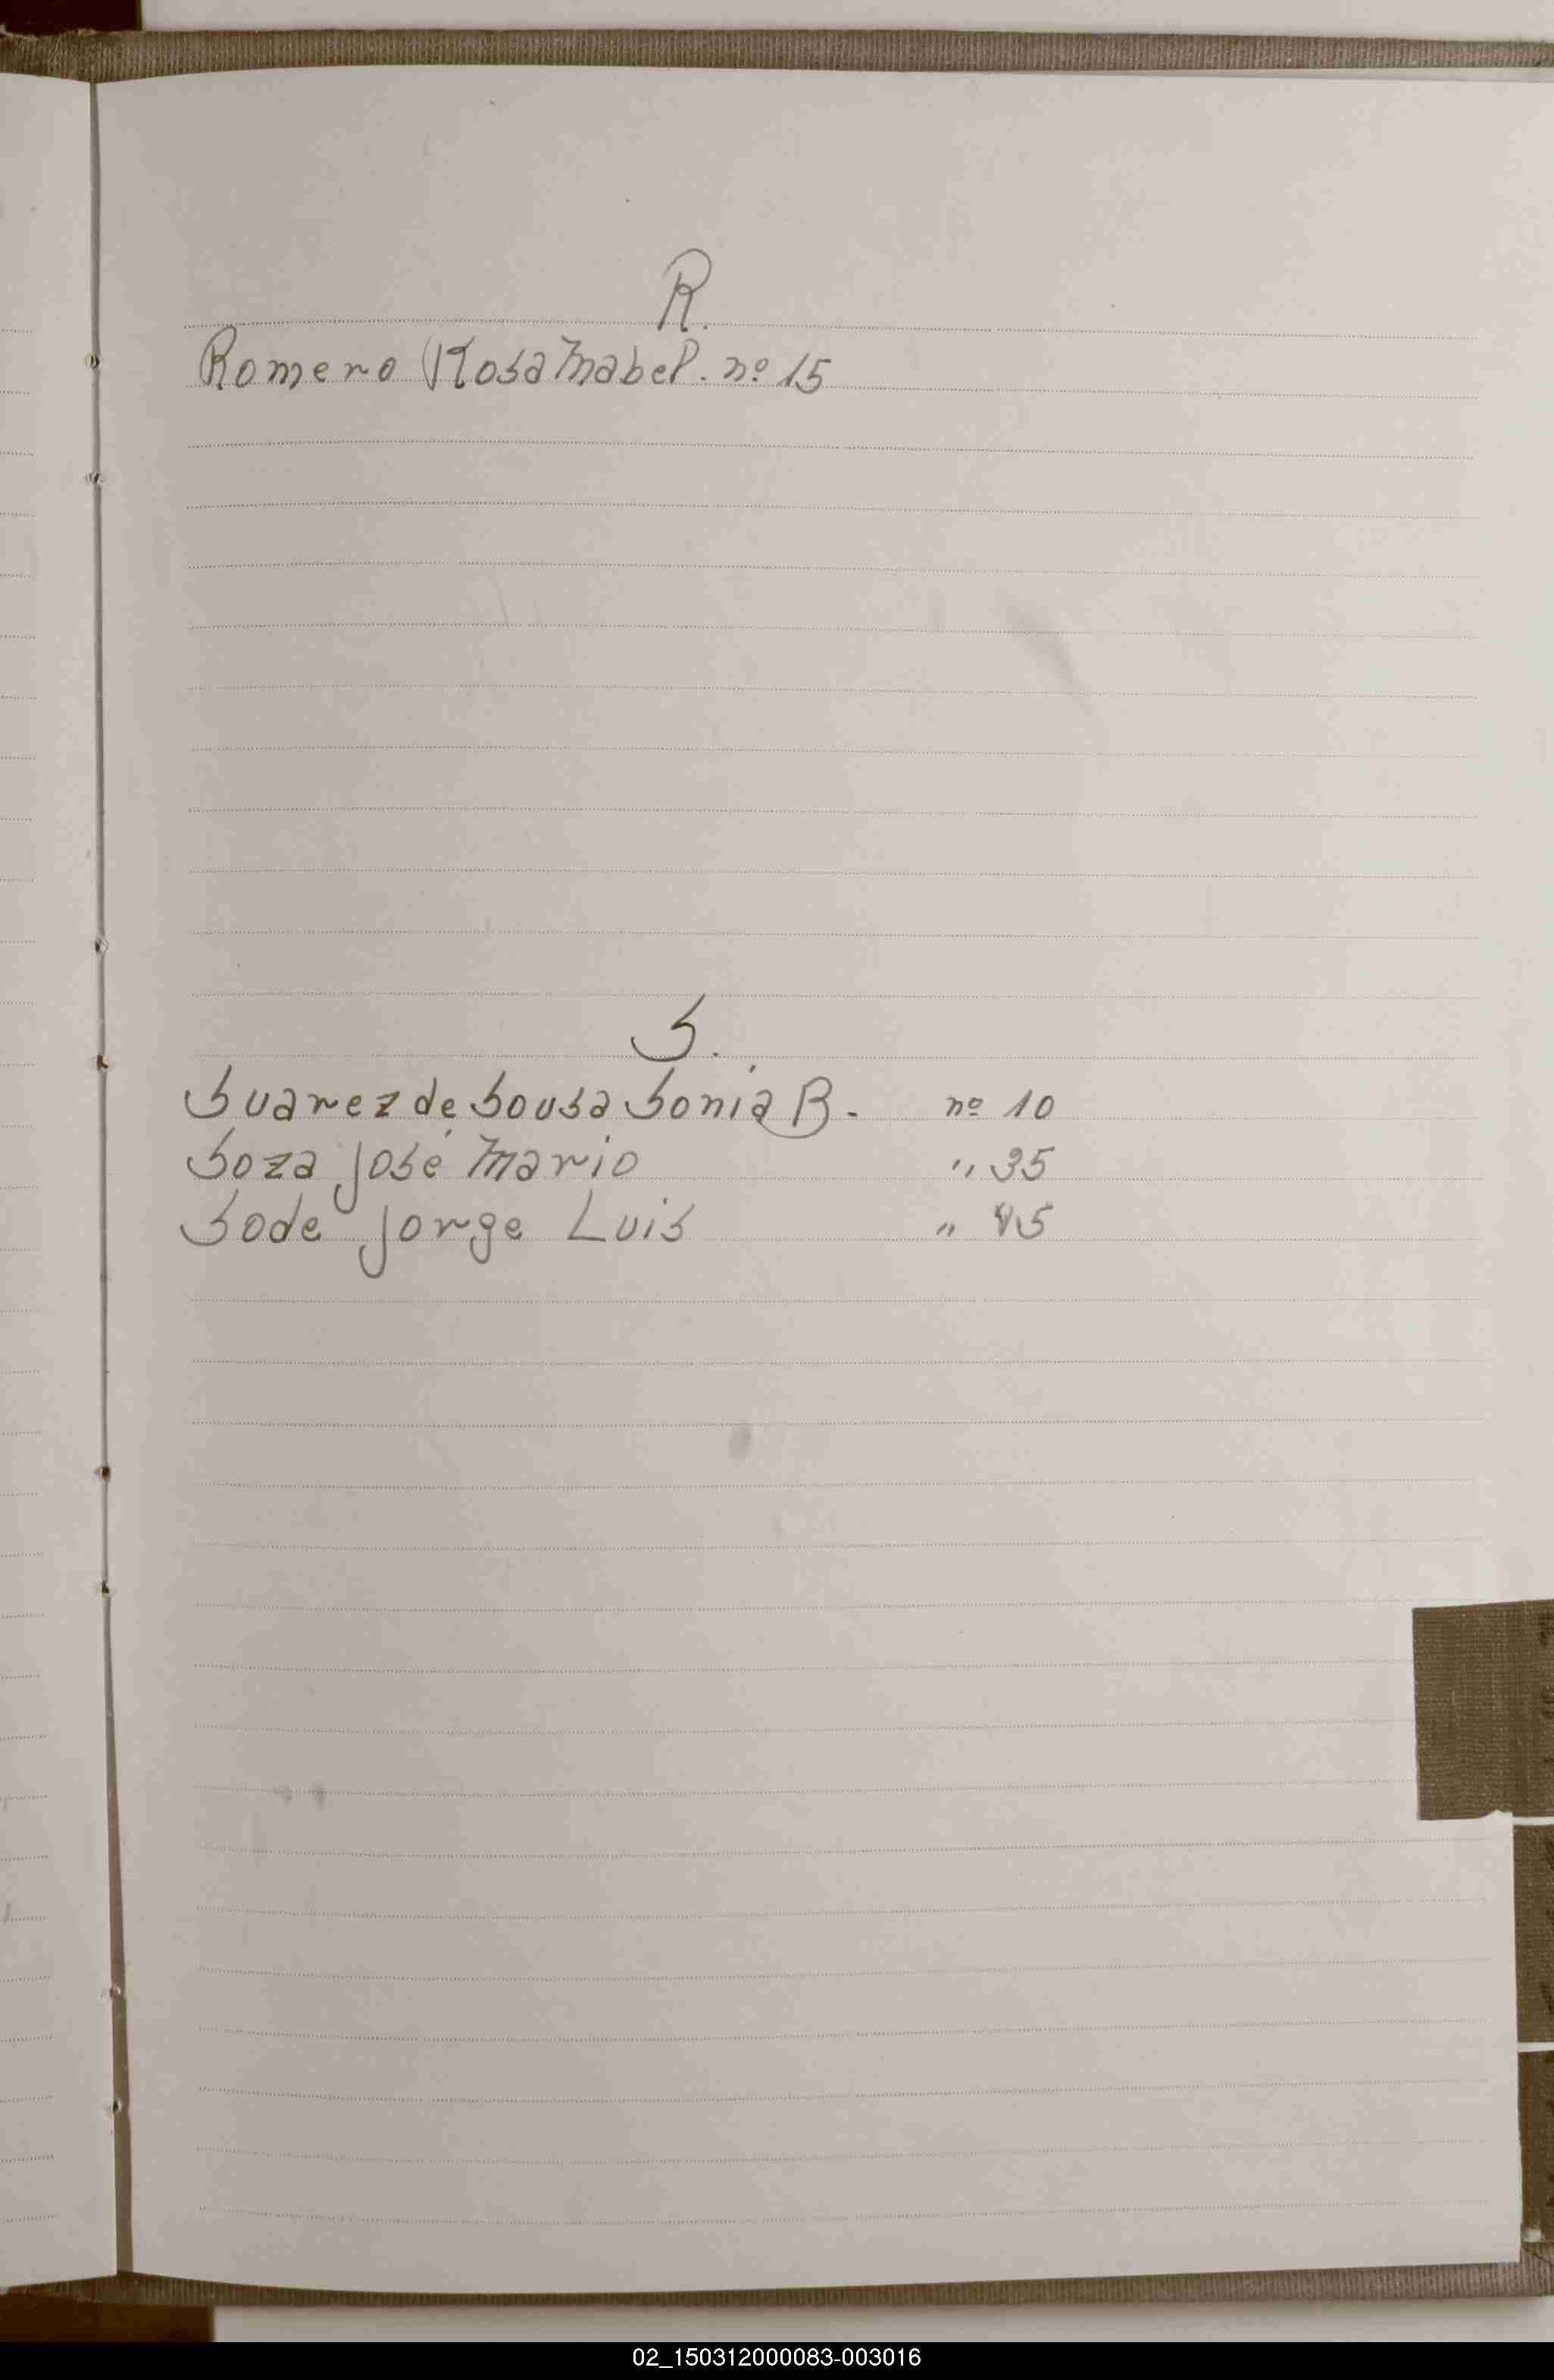 R.
Romero Rosa Mabel. nº 15
S.
Suarez de Sousa Sonia B. nº 10
Soza José Mario " 35
Sode Jorge Luis " 45
02_150312000083-003016